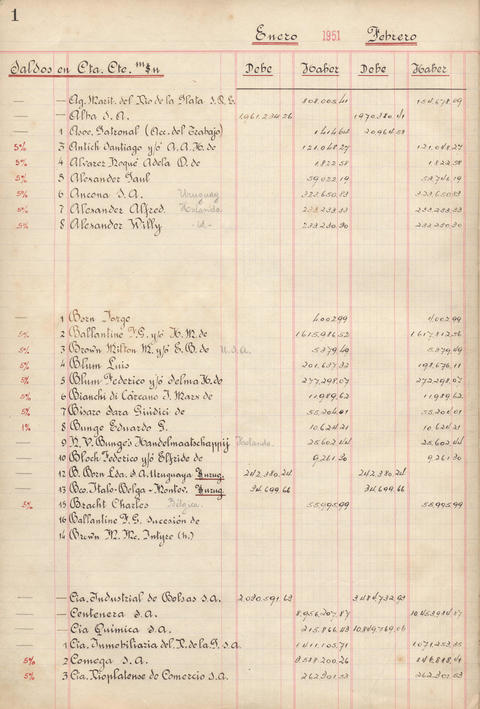 1
Enero 1951 Febrero
Saldos en Cta. Cte. m$n Debe Haber Debe Haber
— — Ag. Marit. del Rio de la Plata S.R.L. 808.005.41 154.678.09
— — Alba S.A. 1.961.234.26 1.970.380.41
— 1 Asoc. Patronal (Acc. del Trabajo)
5% 3 Antich Santiago y/o A.A.K. de 121.048.27 121.048.27
5% 4 Alvarez Roqué Adela O. de 1.822.58 1.822.58
5% 5 Alexander Saul
5% 6 Ancona S.A. Uruguay 323.650.83 323.650.83
5% 7 Alexander Alfred. Holanda 233.233.33 233.233.33
5% 8 Alexander Willy -id- 233.230.30 233.230.30
— 1 Born Jorge 4.002.99 4.002.99
5% 2 Ballantine P.G. y/o H.M. de 1.615.986.52
5% 3 Brown Milton M. y/o E.B. de U.S.A. 5.379.49 5.379.49
5% 4 Blum Luis 201.637.32 198.676.11
5% 5 Blum Federico y/o Selma K. de 277.298.07 272.298.07
5% 6 Bianchi di Cárcano J. Marx de 11.989.62 11.989.62
5% 7 Bisaro Sara Giúdici de 55.204.01 55.204.01
1% 8 Bunge Eduardo G. 10.624.21 10.624.21
— 9 N.V. Bunge's Handelmaatschappij Holanda 25.602.44 25.602.44
— 10 Bloch Federico y/o Elfride de 9.261.30 9.261.30
— 12 B. Born Lda. S.A. Uruguaya Urug. 242.380.24 242.380.24
— 13 Bco. Italo-Belga - Montev. Urug. 34.699.66 34.699.66
5% 15 Bracht Charles Bélgica 55.995.99 55.995.99
16 Ballantine P.G. Sucesión de
14 Brown M. Mc. Intyre (h.)
— — Cia. Industrial de Bolsas S.A. 2.030.591.63 3.484.732.93
— — Centenera S.A. 8.956.207.87
— — Cia Quimica S.A. 215.866.43 10.849.769.06
— 1 Cia. Inmobiliaria del R. de la P. S.A. 1.411.105.71 1.071.253.35
5% 2 Comega S.A. 3.518.200.26
5% 3 Cia. Rioplatense de Comercio S.A. 262.301.53 262.301.53